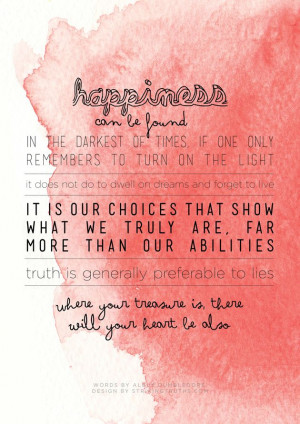 happiness
can be found
IN THE DARKEST OF TIMES, IF ONE ONLY
REMEMBERS TO TURN ON THE LIGHT
it does not do to dwell on dreams and forget to live
IT IS OUR CHOICES THAT SHOW
WHAT WE TRULY ARE, FAR
MORE THAN OUR ABILITIES
truth is generally preferable to lies
where your treasure is, there
will your heart be also
WORDS BY ALBUS DUMBLEDORE
DESIGN BY